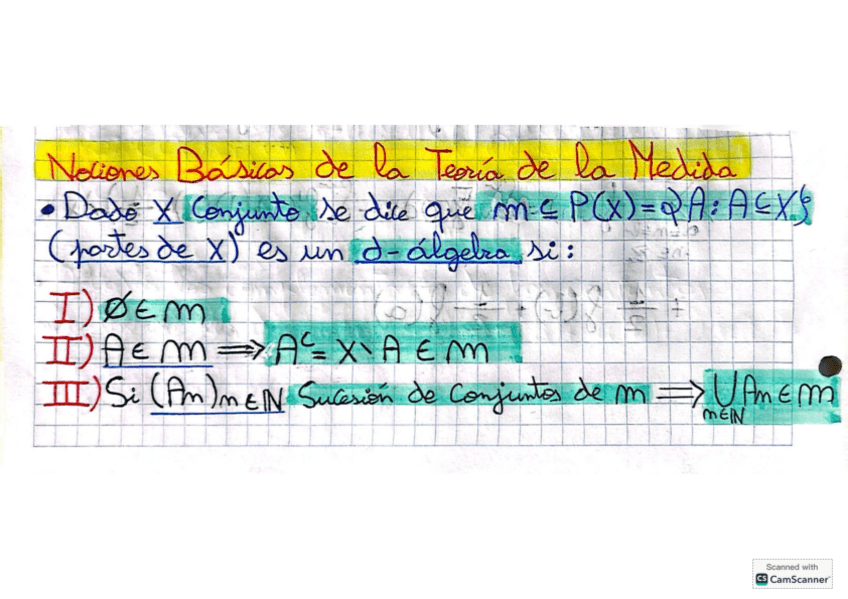 Nociones Básicas de la Teoría de la Medida
• Dado X Conjunto se dice que m ⊆ P(X) = {A : A ⊆ X}
(partes de X) es un σ-álgebra si:
I) ∅ ∈ m
II) A ∈ m ⟹ Aᶜ = X \ A ∈ m
III) Si (An)n∈ℕ Sucesión de Conjuntos de m ⟹ ⋃ An ∈ m
n∈ℕ
Scanned with
CS CamScanner